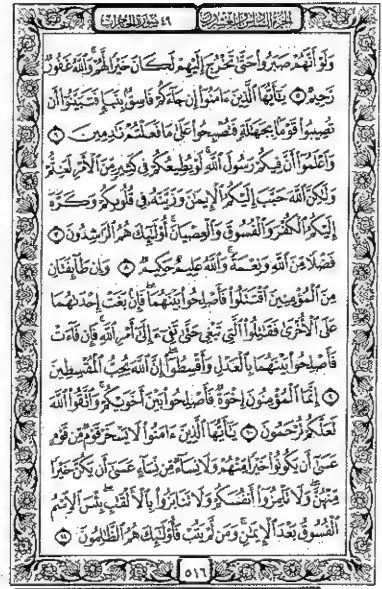 الجزء السادس والعشرون ٤٩ سورة الحجرات
وَلَوْ أَنَّهُمْ صَبَرُوا۟ حَتَّىٰ تَخْرُجَ إِلَيْهِمْ لَكَانَ خَيْرًا لَّهُمْ ۚ وَٱللَّهُ غَفُورٌ
رَّحِيمٌ ٥ يَٰٓأَيُّهَا ٱلَّذِينَ ءَامَنُوٓا۟ إِن جَآءَكُمْ فَاسِقٌۢ بِنَبَإٍ فَتَبَيَّنُوٓا۟ أَن
تُصِيبُوا۟ قَوْمًۢا بِجَهَٰلَةٍ فَتُصْبِحُوا۟ عَلَىٰ مَا فَعَلْتُمْ نَٰدِمِينَ ٦
وَٱعْلَمُوٓا۟ أَنَّ فِيكُمْ رَسُولَ ٱللَّهِ ۚ لَوْ يُطِيعُكُمْ فِى كَثِيرٍ مِّنَ ٱلْأَمْرِ لَعَنِتُّمْ
وَلَٰكِنَّ ٱللَّهَ حَبَّبَ إِلَيْكُمُ ٱلْإِيمَٰنَ وَزَيَّنَهُۥ فِى قُلُوبِكُمْ وَكَرَّهَ
إِلَيْكُمُ ٱلْكُفْرَ وَٱلْفُسُوقَ وَٱلْعِصْيَانَ ۚ أُو۟لَٰٓئِكَ هُمُ ٱلرَّٰشِدُونَ ٧
فَضْلًا مِّنَ ٱللَّهِ وَنِعْمَةً ۚ وَٱللَّهُ عَلِيمٌ حَكِيمٌ ٨ وَإِن طَآئِفَتَانِ
مِنَ ٱلْمُؤْمِنِينَ ٱقْتَتَلُوا۟ فَأَصْلِحُوا۟ بَيْنَهُمَا ۖ فَإِنۢ بَغَتْ إِحْدَىٰهُمَا
عَلَى ٱلْأُخْرَىٰ فَقَٰتِلُوا۟ ٱلَّتِى تَبْغِى حَتَّىٰ تَفِىٓءَ إِلَىٰٓ أَمْرِ ٱللَّهِ ۚ فَإِن فَآءَتْ
فَأَصْلِحُوا۟ بَيْنَهُمَا بِٱلْعَدْلِ وَأَقْسِطُوٓا۟ ۖ إِنَّ ٱللَّهَ يُحِبُّ ٱلْمُقْسِطِينَ
٩ إِنَّمَا ٱلْمُؤْمِنُونَ إِخْوَةٌ فَأَصْلِحُوا۟ بَيْنَ أَخَوَيْكُمْ ۚ وَٱتَّقُوا۟ ٱللَّهَ
لَعَلَّكُمْ تُرْحَمُونَ ١٠ يَٰٓأَيُّهَا ٱلَّذِينَ ءَامَنُوا۟ لَا يَسْخَرْ قَوْمٌ مِّن قَوْمٍ
عَسَىٰٓ أَن يَكُونُوا۟ خَيْرًا مِّنْهُمْ وَلَا نِسَآءٌ مِّن نِّسَآءٍ عَسَىٰٓ أَن يَكُنَّ خَيْرًا
مِّنْهُنَّ ۖ وَلَا تَلْمِزُوٓا۟ أَنفُسَكُمْ وَلَا تَنَابَزُوا۟ بِٱلْأَلْقَٰبِ ۖ بِئْسَ ٱلِٱسْمُ
ٱلْفُسُوقُ بَعْدَ ٱلْإِيمَٰنِ ۚ وَمَن لَّمْ يَتُبْ فَأُو۟لَٰٓئِكَ هُمُ ٱلظَّٰلِمُونَ ١١
٥١٦